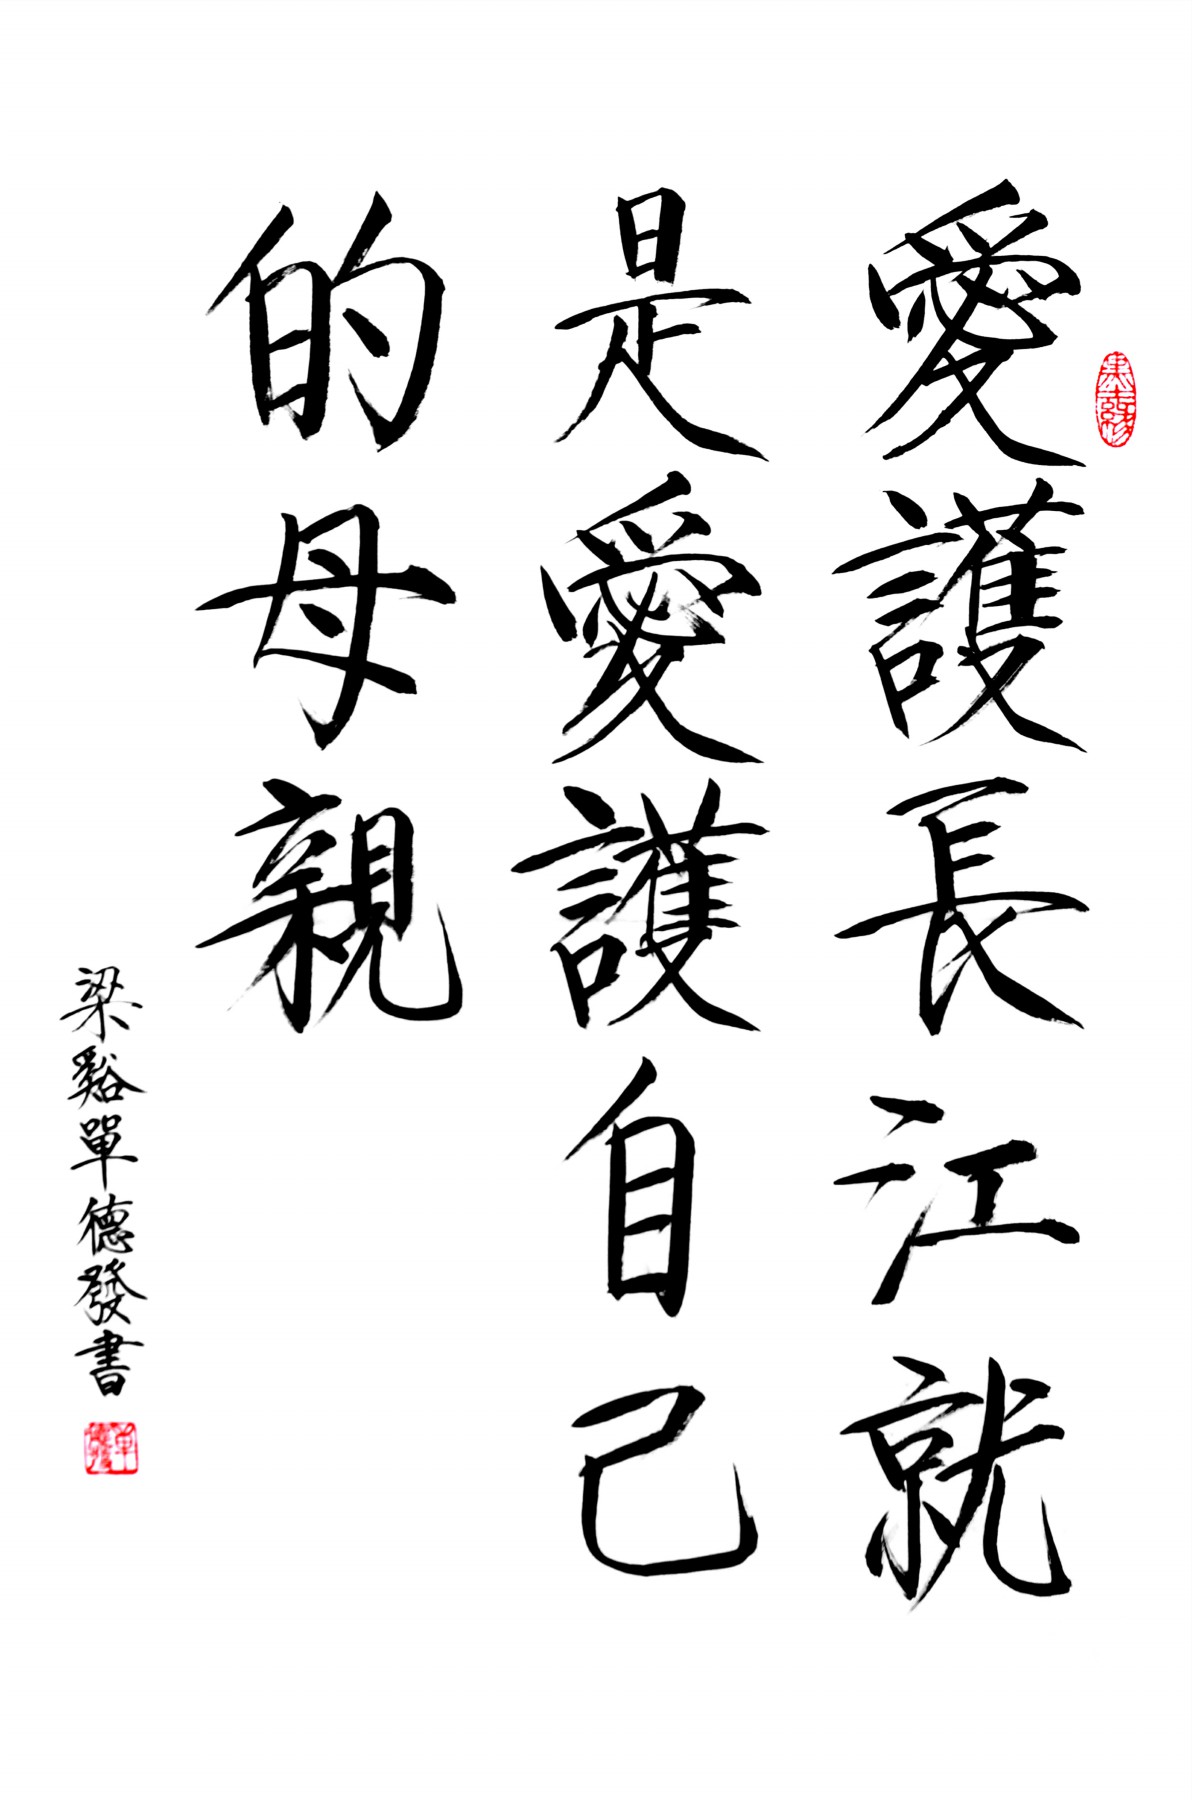 愛護長江就
是愛護自己
的母親
梁谿單德發書